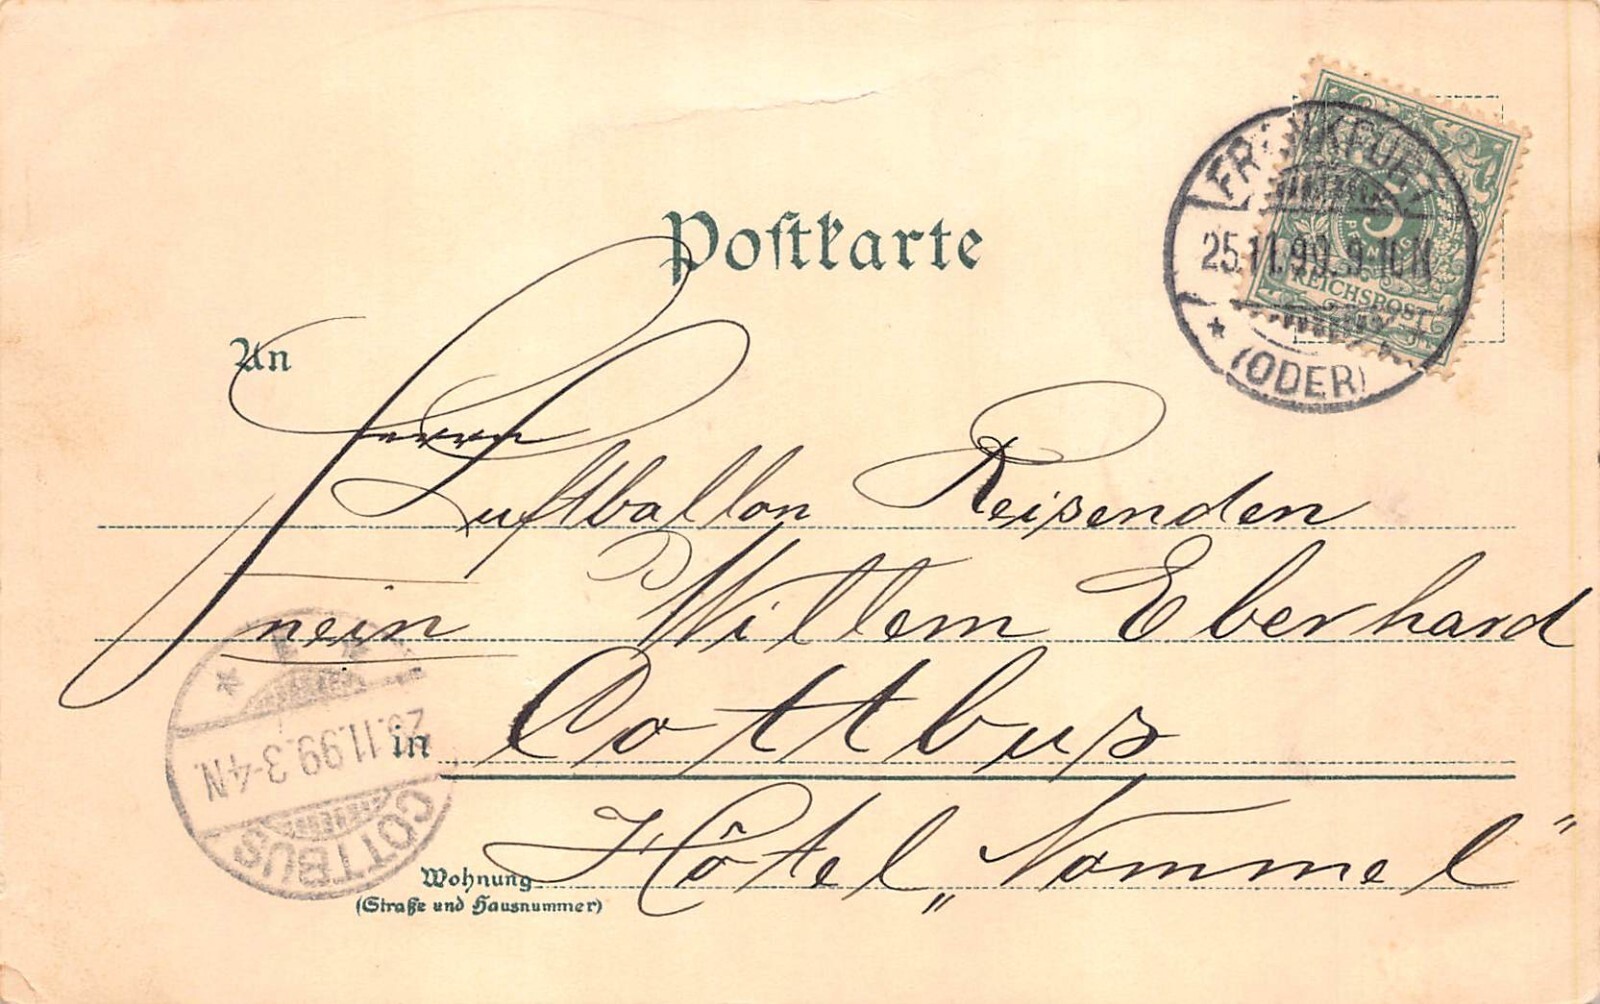 Postkarte
FRANKFURT
25.11.99.9-10N
* (ODER)
5
PFENNIG
REICHSPOST
An
Herrn
Luftballon Reisenden
nein Willem Eberhard
in Cottbus
Hôtel „Nommel"
Wohnung
(Straße und Hausnummer)
COTTBUS
26.11.99.3-4N.